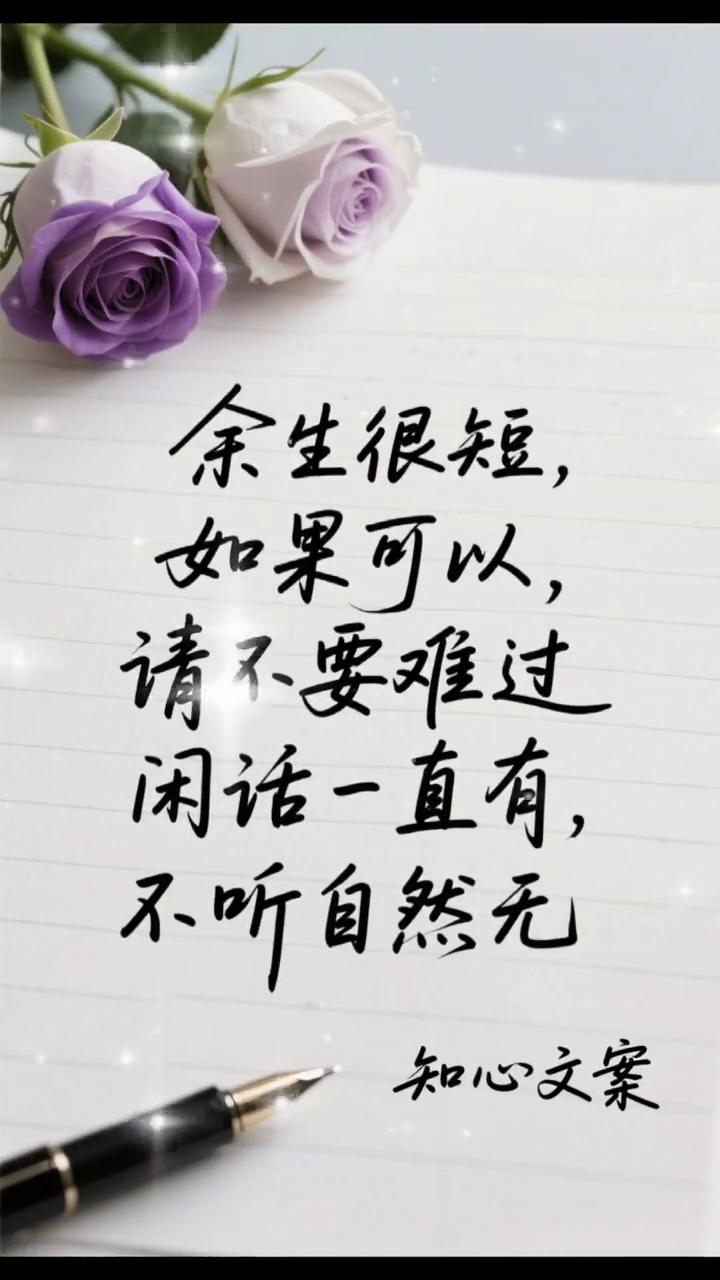 余生很短,
如果可以,
请不要难过
闲话一直有,
不听自然无
知心文案